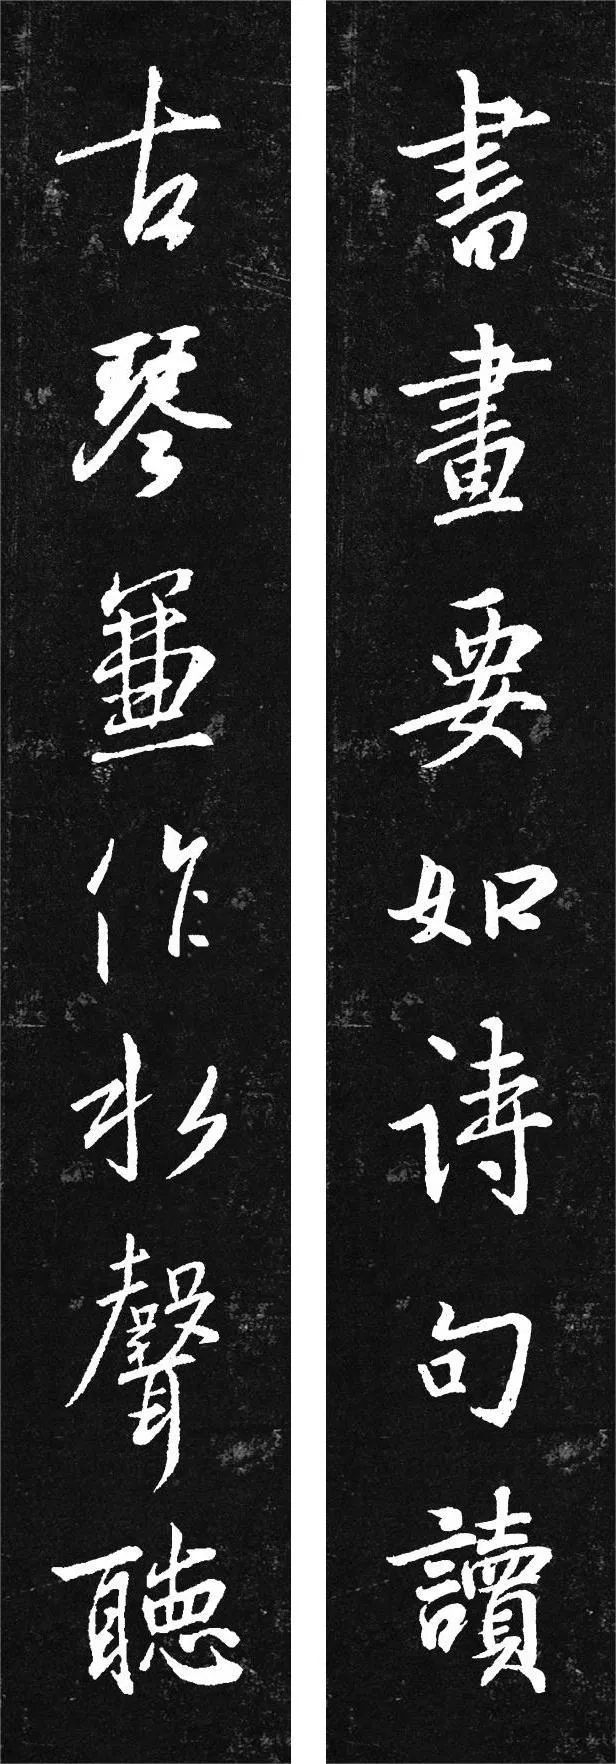 書畫要如詩句讀
古琴兼作水聲聽